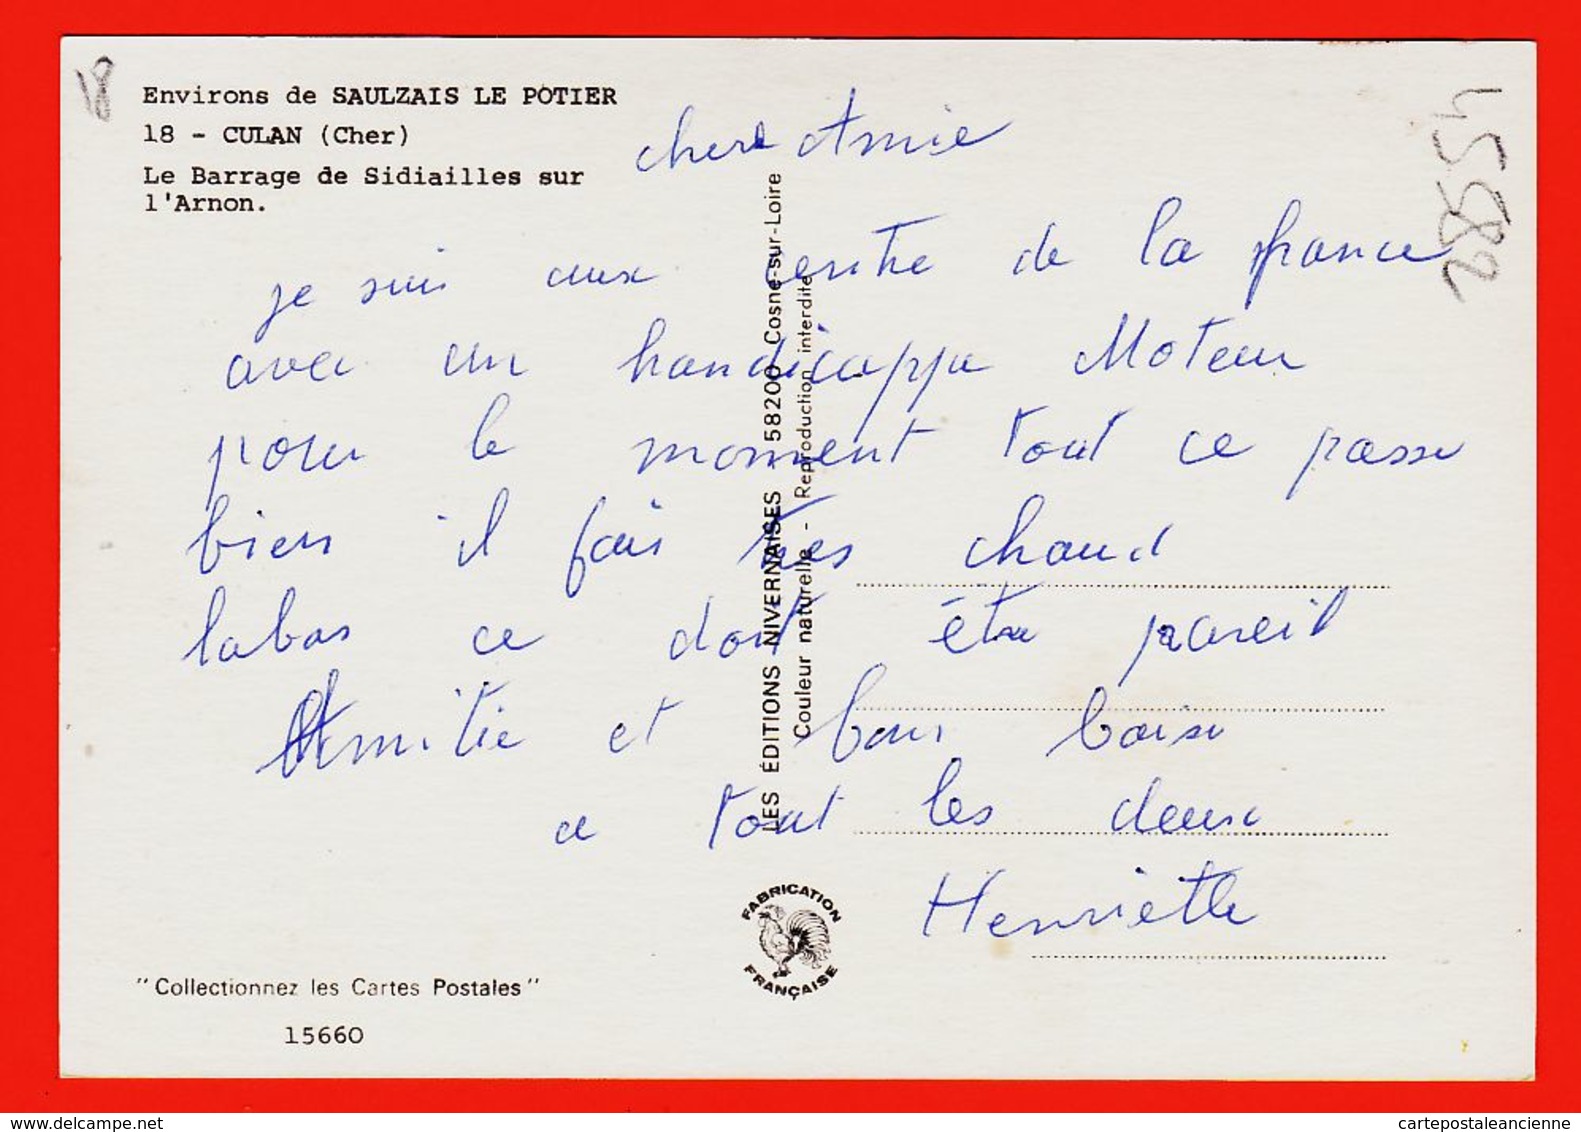 Environs de SAULZAIS LE POTIER
18 - CULAN (Cher)
Le Barrage de Sidiailles sur
l'Arnon.
18
28554
chere Amie
je suis aux centre de la france
avec un handicappe Moteur
pour le moment tout ce passe
bien il fais tres chaud
labas ce doit être pareil
Amitie et bons baise
a tout les deux
Henriette
LES ÉDITIONS NIVERNAISES - 58200 Cosne-sur-Loire
Couleur naturelle - Reproduction interdite
FABRICATION
FRANÇAISE
"Collectionnez les Cartes Postales"
15660
cartepostaleancienne